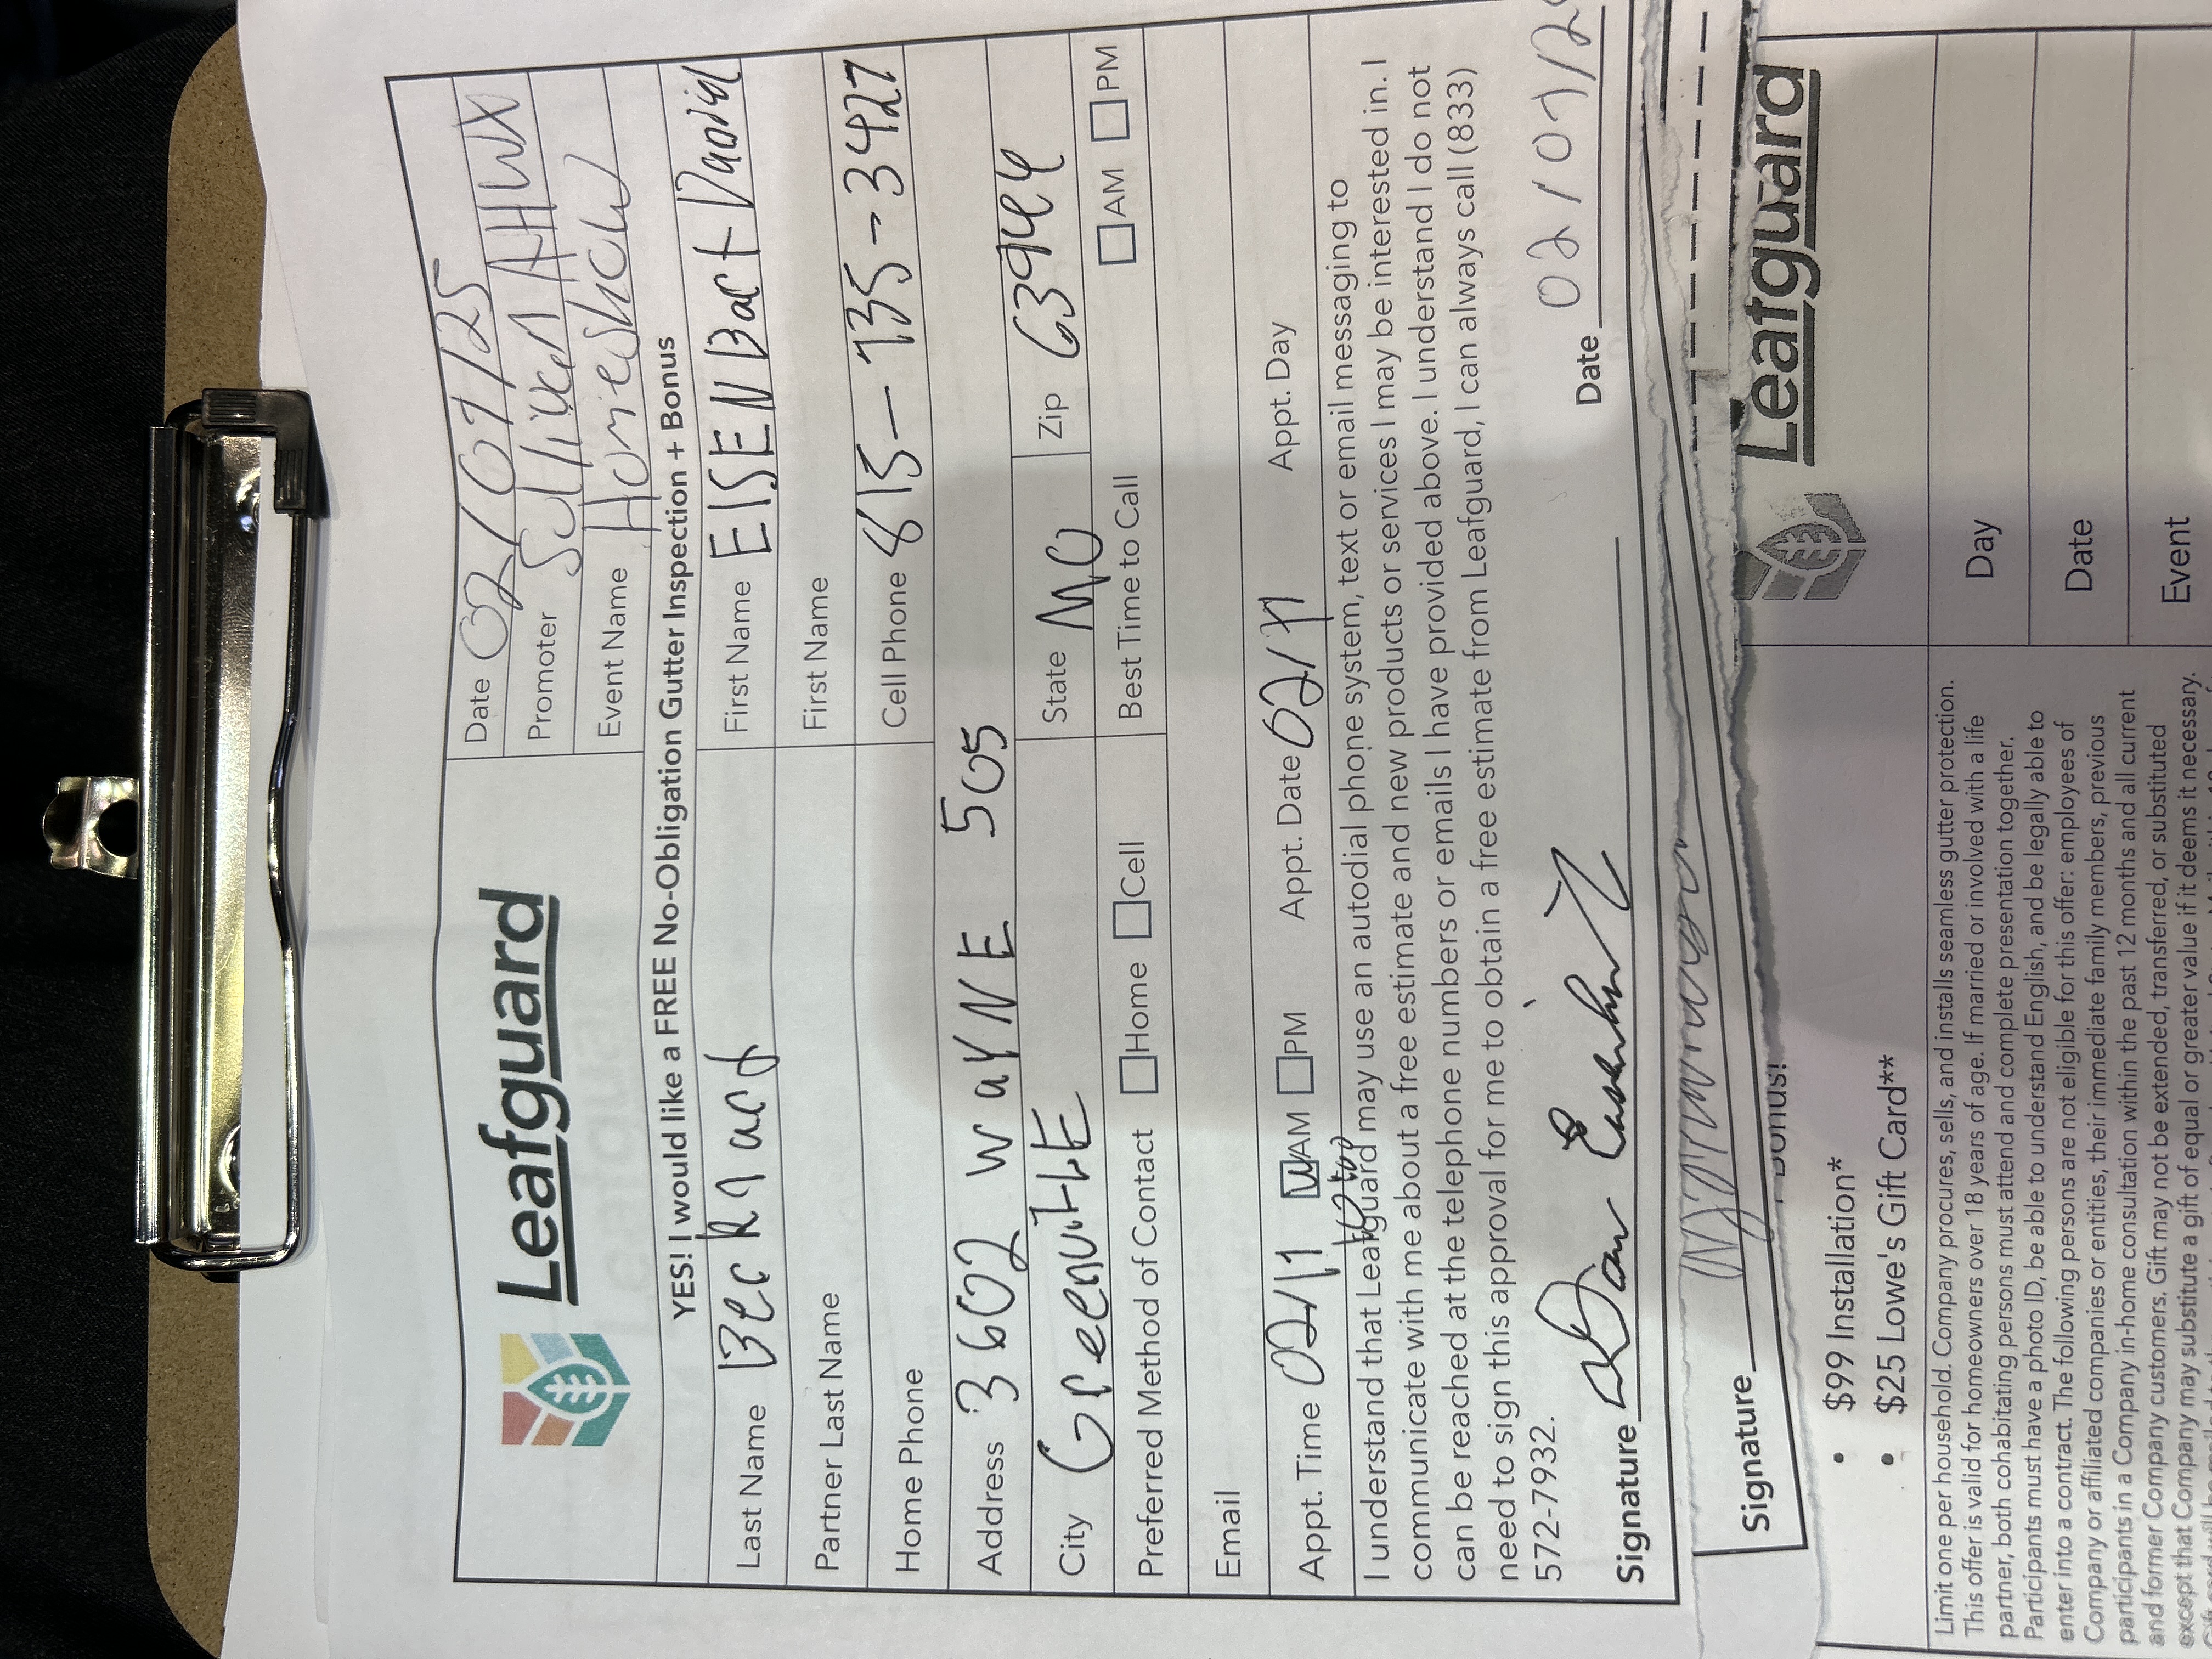 Leafguard
Date 02/07/25
Promoter Sullivan AHWX
Event Name Homeshow
YES! I would like a FREE No-Obligation Gutter Inspection + Bonus
Last Name
First Name EISENBart David
Partner Last Name
First Name
Home Phone
Cell Phone 815-735-3427
Address 3602 WAYNE 505
City GreenviLLE
State MO
Zip 63944
Preferred Method of Contact Home Cell
Best Time to Call AM PM
Email
Appt. Time 02/11 AM PM Appt. Date 02/11 Appt. Day
I understand that Leafguard may use an autodial phone system, text or email messaging to
communicate with me about a free estimate and new products or services I may be interested in. I
can be reached at the telephone numbers or emails I have provided above. I understand I do not
need to sign this approval for me to obtain a free estimate from Leafguard, I can always call (833)
572-7932.
Signature
Date 02/07/2
Signature
Bonus!
• $99 Installation*
• $25 Lowe's Gift Card**
Leafguard
Limit one per household. Company procures, sells, and installs seamless gutter protection.
This offer is valid for homeowners over 18 years of age. If married or involved with a life
partner, both cohabitating persons must attend and complete presentation together.
Participants must have a photo ID, be able to understand English, and be legally able to
enter into a contract. The following persons are not eligible for this offer: employees of
Company or affiliated companies or entities, their immediate family members, previous
participants in a Company in-home consultation within the past 12 months and all current
and former Company customers. Gift may not be extended, transferred, or substituted
except that Company may substitute a gift of equal or greater value if it deems it necessary.
Day
Date
Event